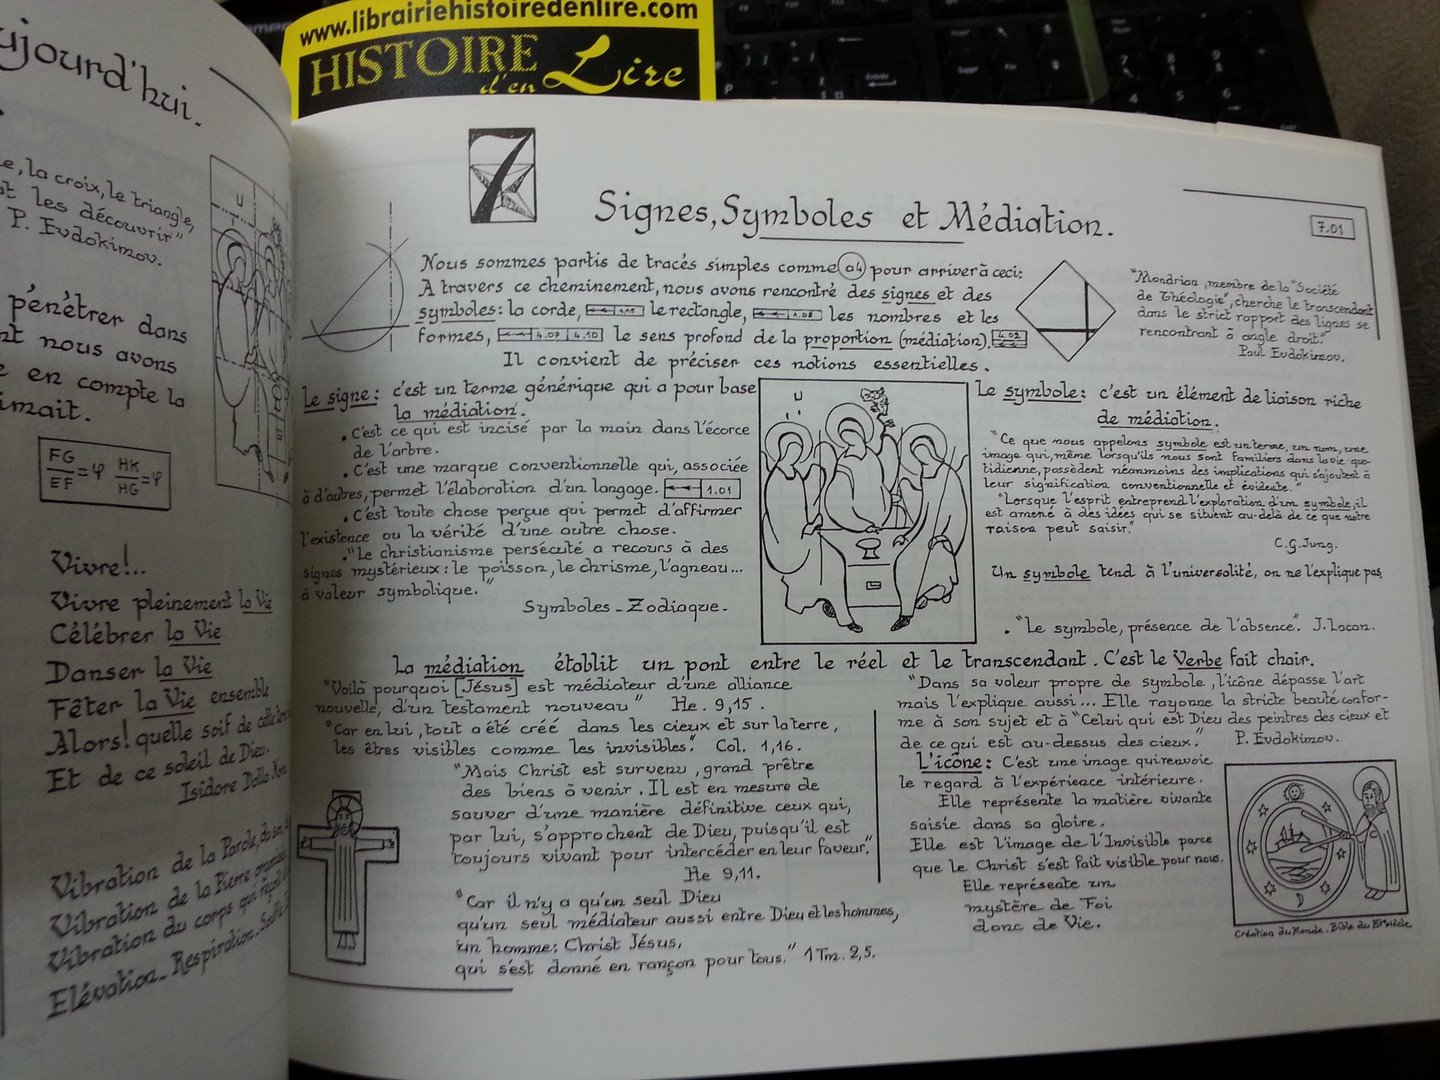 www.librairiehistoiredenlire.com
HISTOIRE
d'en Lire
ujourd'hui.
e, la croix, le triangle,
at les découvrir"
P. Evdokimov.
pénétrer dans
nt nous avons
e en compte la
imait.
FG/EF = φ HK/HG = φ
Vivre!...
Vivre pleinement la Vie
Célébrer la Vie
Danser la Vie
Fêter la Vie ensemble
Alors! quelle soif de cette
Et de ce soleil de Dieu.
Isidore Dalla
Vibration de la Parole, du son
Vibration de la Pierre
Vibration du corps qui reçoit
Elévation_ Respiration.
7
Signes, Symboles et Médiation.
7.01
Nous sommes partis de tracés simples comme a4 pour arriver à ceci:
A travers ce cheminement, nous avons rencontré des signes et des
symboles: la corde, 1.15 le rectangle, 1.08 les nombres et les
formes, 4.07 4.10 le sens profond de la proportion (médiation). 4.02
Il convient de préciser ces notions essentielles.
"Mondrian, membre de la "Société
de Théologie", cherche le transcendant
dans le strict rapport des lignes se
rencontrant à angle droit."
Paul Evdokimov.
Le signe: c'est un terme générique qui a pour base
la médiation.
. C'est ce qui est incisé par la main dans l'écorce
de l'arbre.
. C'est une marque conventionnelle qui, associée
à d'autres, permet l'élaboration d'un langage. 1.01
. C'est toute chose perçue qui permet d'affirmer
l'existence ou la vérité d'une autre chose.
. "Le christianisme persécuté a recours à des
signes mystérieux: le poisson, le chrisme, l'agneau...
à valeur symbolique."
Symboles - Zodiaque.
Le symbole: c'est un élément de liaison riche
de médiation.
"Ce que nous appelons symbole est un terme, un nom, une
image qui, même lorsqu'ils nous sont familiers dans la vie quo-
tidienne, possèdent néanmoins des implications qui s'ajoutent à
leur signification conventionnelle et évidente."
"Lorsque l'esprit entreprend l'exploration d'un symbole, il
est amené à des idées qui se situent au-delà de ce que notre
raison peut saisir."
C.G. Jung.
Un symbole tend à l'universalité, on ne l'explique pas
. "Le symbole, présence de l'absence". J. Lacan.
La médiation établit un pont entre le réel et le transcendant. C'est le Verbe fait chair.
"Voilà pourquoi [Jésus] est médiateur d'une alliance
nouvelle, d'un testament nouveau" He. 9,15.
"Car en lui, tout a été créé dans les cieux et sur la terre,
les êtres visibles comme les invisibles". Col. 1,16.
"Mais Christ est survenu, grand prêtre
des biens à venir. Il est en mesure de
sauver d'une manière définitive ceux qui,
par lui, s'approchent de Dieu, puisqu'il est
toujours vivant pour intercéder en leur faveur."
He 9,11.
"Car il n'y a qu'un seul Dieu
qu'un seul médiateur aussi entre Dieu et les hommes,
un homme: Christ Jésus,
qui s'est donné en rançon pour tous." 1 Tm. 2,5.
"Dans sa valeur propre de symbole, l'icône dépasse l'art
mais l'explique aussi... Elle rayonne la stricte beauté confor-
me à son sujet et à "Celui qui est Dieu des peintres des cieux et
de ce qui est au-dessus des cieux." P. Evdokimov.
L'icône: C'est une image qui renvoie
le regard à l'expérience intérieure.
Elle représente la matière vivante
saisie dans sa gloire.
Elle est l'image de l'Invisible parce
que le Christ s'est fait visible pour nous.
Elle représente un
mystère de Foi
donc de Vie.
Création du Monde - Bible du siècle